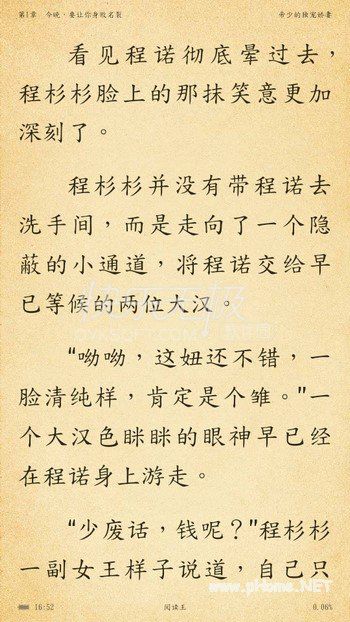 第1章 今晚,要让你身败名裂
帝少的独宠娇妻
看见程诺彻底晕过去，
程杉杉脸上的那抹笑意更加
深刻了。
程杉杉并没有带程诺去
洗手间，而是走向了一个隐
蔽的小通道，将程诺交给早
已等候的两位大汉。
“呦呦，这妞还不错，一
脸清纯样，肯定是个雏。”一
个大汉色眯眯的眼神早已经
在程诺身上游走。
“少废话，钱呢？”程杉杉
一副女王样子说道，自己只
16:52
阅读王
0.06%